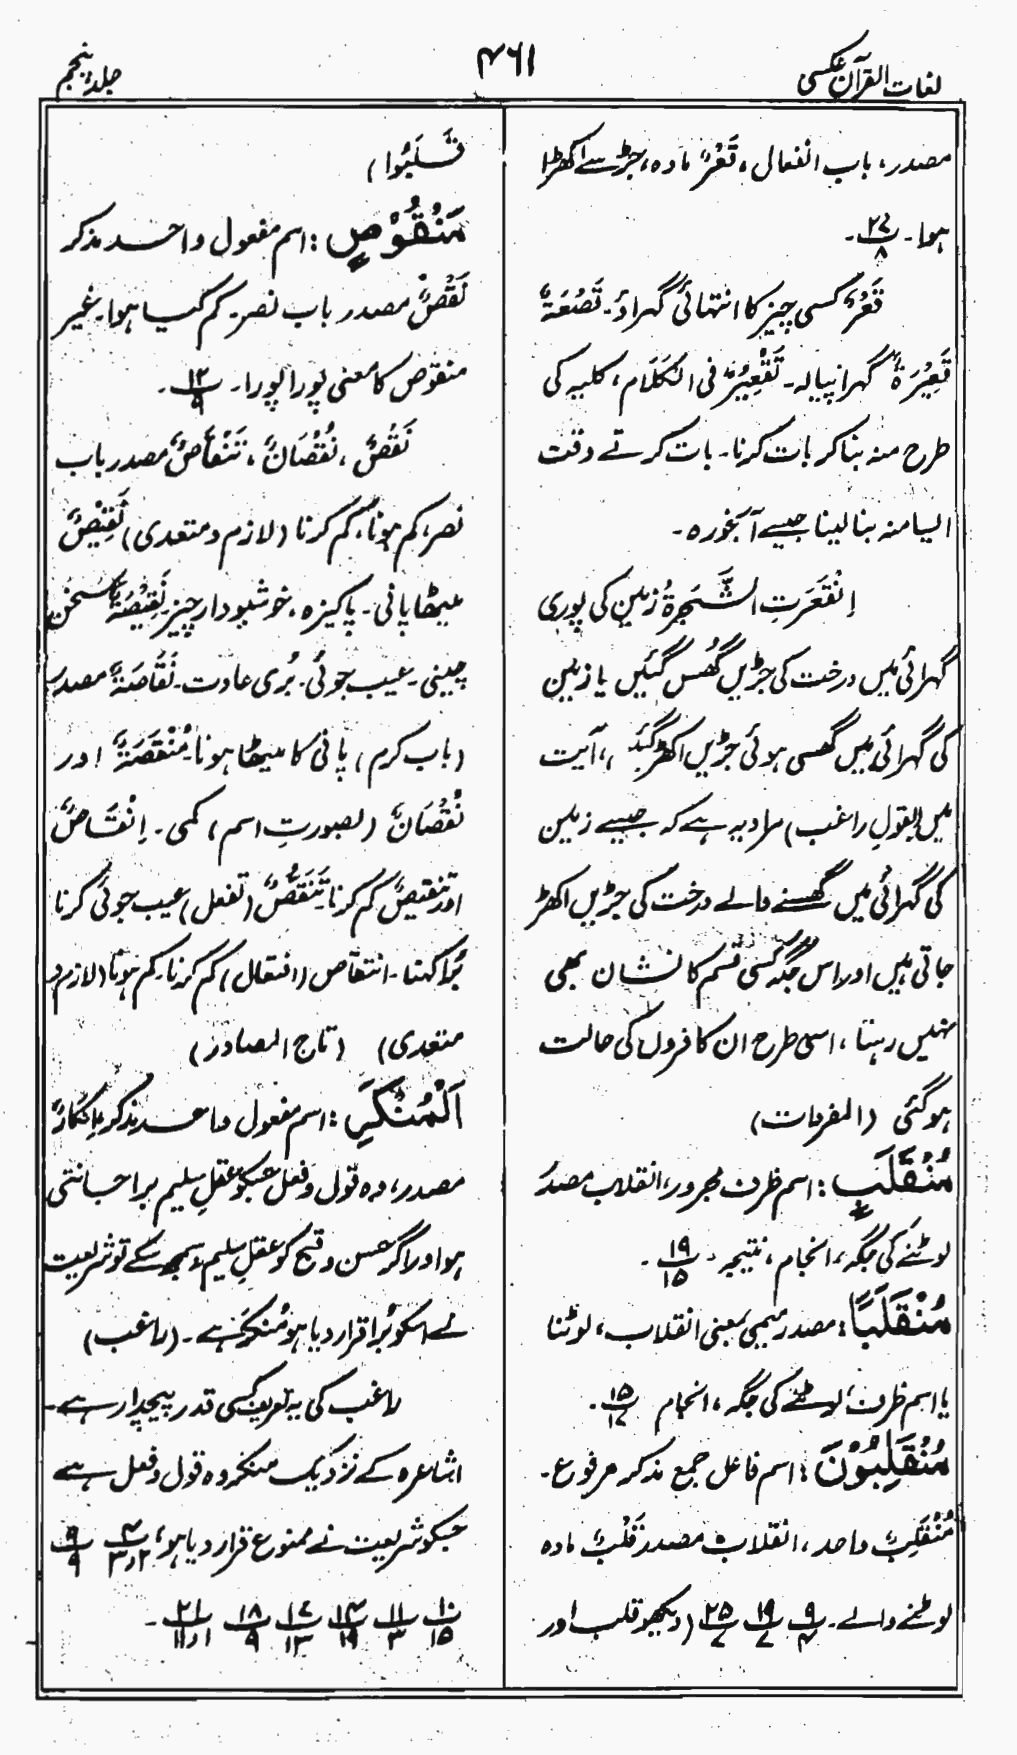 لغات القرآن عکسی
۴۶۱
جلد پنجم
مصدر، باب انفعال، قَعْرٌ مادہ، جڑ سے اکھڑا
ہوا۔ ۲۷/۸۔
قَعْرٌ کسی چیز کا انتہائی گہراؤ۔ قَصْعَةٌ
قَعِيْرَةٌ گہرا پیالہ۔ تَقْعِيْرٌ فی الکَلَام، کلیہ کی
طرح منہ بنا کر بات کرنا۔ بات کرتے وقت
ایسا منہ بنا لینا جیسے آبخورہ۔
اِنْقَعَرَتِ الشَّجَرَةُ زمین کی پوری
گہرائی میں درخت کی جڑیں گھُس گئیں یا زمین
کی گہرائی میں گھسی ہوئی جڑیں اکھڑ گئیں، آیت
میں (بقولِ راغب) مراد یہ ہے کہ جیسے زمین
کی گہرائی میں گھسنے والے درخت کی جڑیں اکھڑ
جاتی ہیں اور اس جگہ کسی قسم کا نشان بھی
نہیں رہتا، اسی طرح ان کافروں کی حالت
ہوگئی (المفردات)
مُنْقَلَبٍ: اسم ظرف مجرور، انقلاب مصدر
لوٹنے کی جگہ، انجام، نتیجہ۔ ۱۹/۱۵۔
مُنْقَلَبًا: مصدر میمی بمعنی انقلاب، لوٹنا
یا اسم ظرف، لوٹنے کی جگہ، انجام ۱۵/۱۷۔
مُنْقَلِبُوْنَ: اسم فاعل جمع مذکر مرفوع۔
مُنْقَلِبٌ واحد، انقلاب مصدر قَلْبٌ مادہ
لوٹنے والے۔ ۹/۴ ۱۹/۷ ۲۵/۷ (دیکھو قلب اور
تَقَلَّبُوا)
مَنْقُوْصٍ: اسم مفعول واحد مذکر
نَقْصٌ مصدر باب نصر۔ کم کیا ہوا۔ غیر
منقوص کا معنی پورا پورا۔ ۱۲/۹۔
نَقْصٌ، نُقْصَانٌ، تَنْقَاصٌ مصدر باب
نصر، کم ہونا، کم کرنا (لازم و متعدی) نَقِيْصٌ
میٹھا پانی۔ پاکیزہ، خوشبودار چیز۔ نَقِيْصَةٌ سخن
چینی۔ عیب جوئی۔ بُری عادت۔ نَقَاصَةٌ مصدر
(باب کرم) پانی کا میٹھا ہونا۔ مَنْقَصَةٌ اور
نُقْصَانٌ (بصورتِ اسم) کمی۔ اِنْقَاصٌ
اور تنقیصٌ کم کرنا۔ تَنَقُّصٌ (تفعل) عیب جوئی کرنا
بُرا کہنا۔ انتقاص (افتعال) کم کرنا۔ کم ہونا (لازم و
متعدی) (تاج المصادر)
اَلْمُنْكَرِ: اسم مفعول واحد مذکر اِنْكَارٌ
مصدر، وہ قول و فعل جسکو عقلِ سلیم برا جانتی
ہو اور اگر حسن و قبح کو عقلِ سلیم نہ سمجھ سکے تو شریعت
نے اسکو بُرا قرار دیا ہو مُنکَر ہے۔ (راغب)
راغب کی یہ تعریف کسی قدر پیچدار ہے۔
اشاعرہ کے نزدیک منکر وہ قول و فعل ہے
جسکو شریعت نے ممنوع قرار دیا ہو، ۴/۲ و ۳ ۹/۹
۱۰/۱۵ ۱۱/۳ ۱۴/۱۹ ۱۷/۱۳ ۱۸/۹ ۲۱/۱ و ۱۱۔